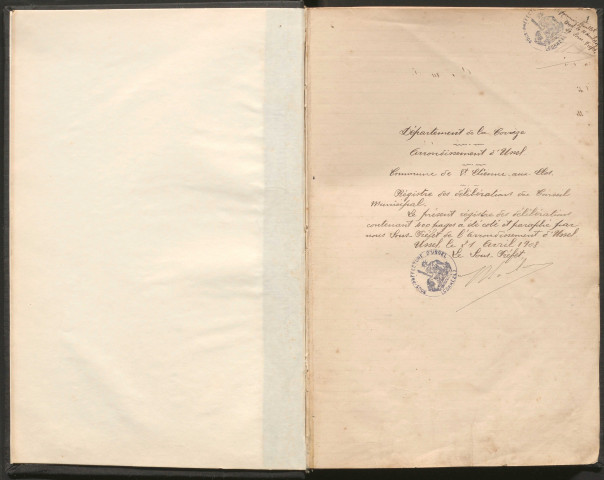 Département de la Corrèze
Arrondissement d'Ussel
Commune de St Etienne aux Clos
Registre des délibérations du Conseil
Municipal.
Le présent registre des délibérations
contenant pages a été coté et paraphé par
nous Sous Préfet de l'arrondissement d'Ussel
Ussel le 21 Avril
Le Sous Préfet
SOUS-PRÉFECTURE D'USSEL